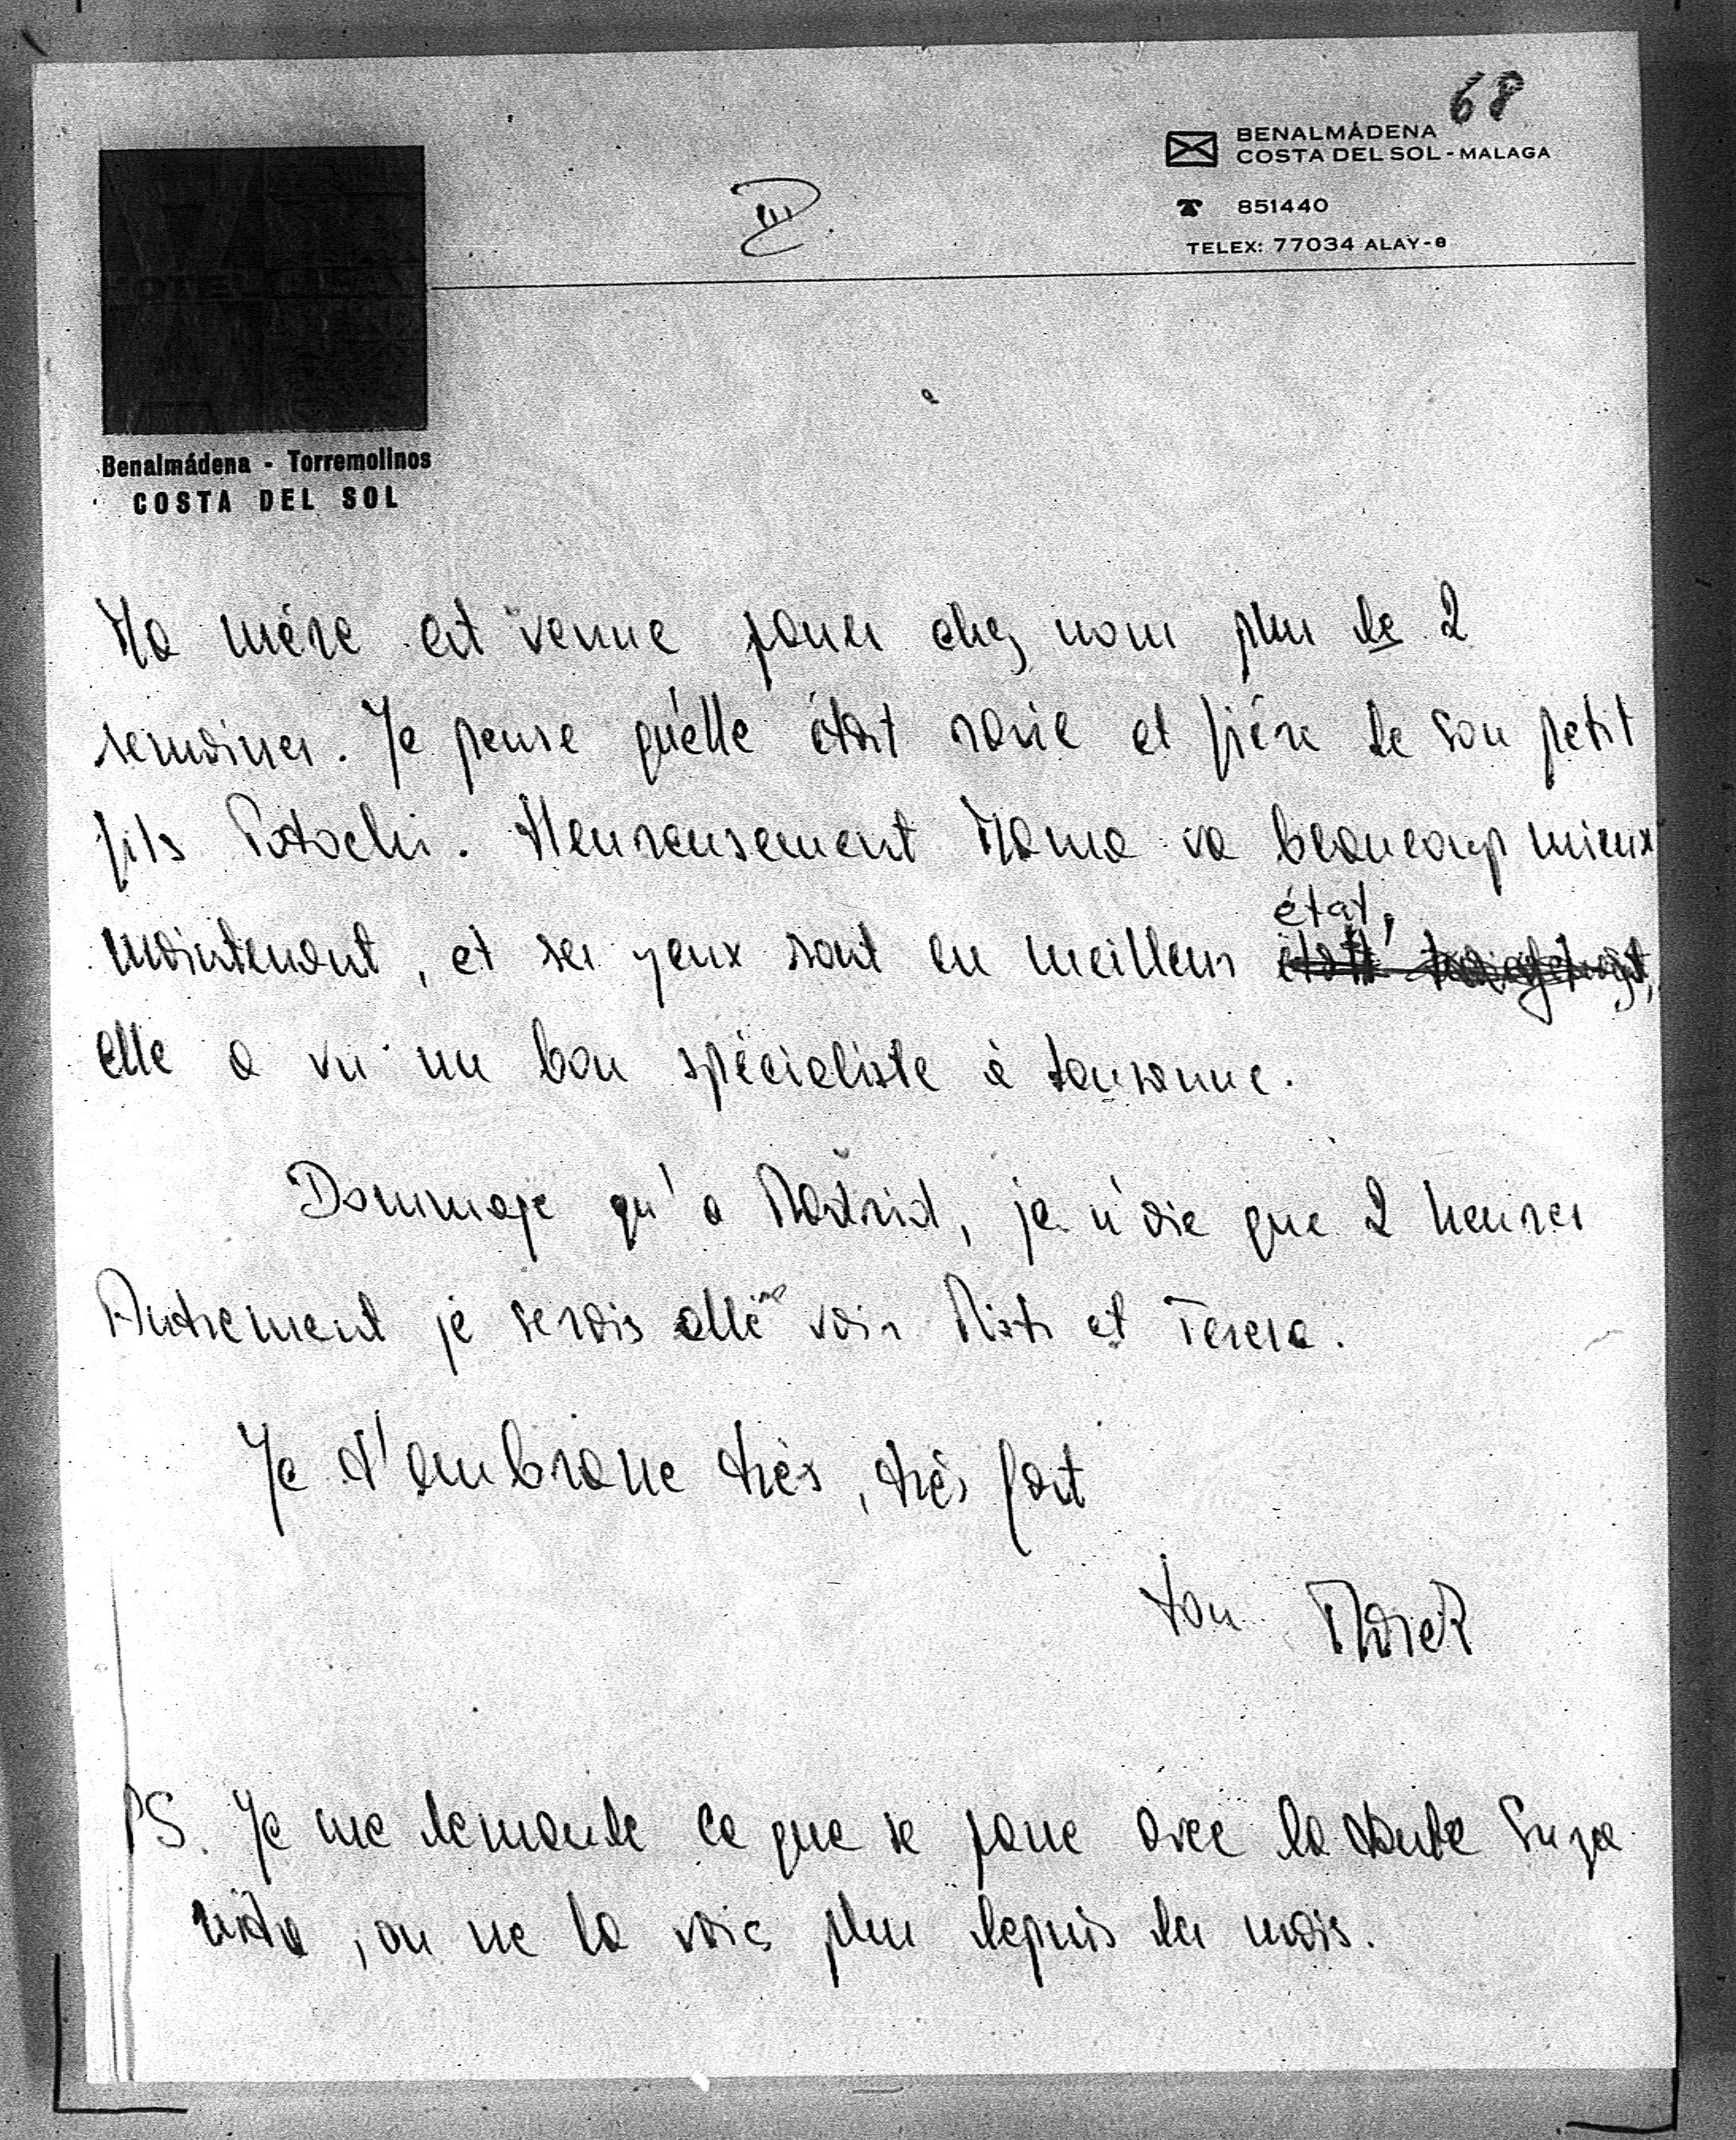 68
BENALMÁDENA
COSTA DEL SOL - MALAGA
851440
TELEX: 77034 ALAY-e
III
HOTEL
Benalmádena - Torremolinos
COSTA DEL SOL
Ma mère est venue passer chez nous plus de 2
semaines. Je pense qu'elle était ravie et fière de son petit
fils Patochi. Heureusement Mama va beaucoup mieux
état,
maintenant, et ses yeux sont en meilleur
elle a vu un bon spécialiste à Lausanne.
Dommage qu'a Madrid, je n'aie que 2 heures
Autrement je serais allé voir Misti et Teresa.
Je t'embrasse très, très fort
ton Marek
PS. Je me demande ce que se passe avec la tante Suza
nita, on ne la vois plus depuis des mois.